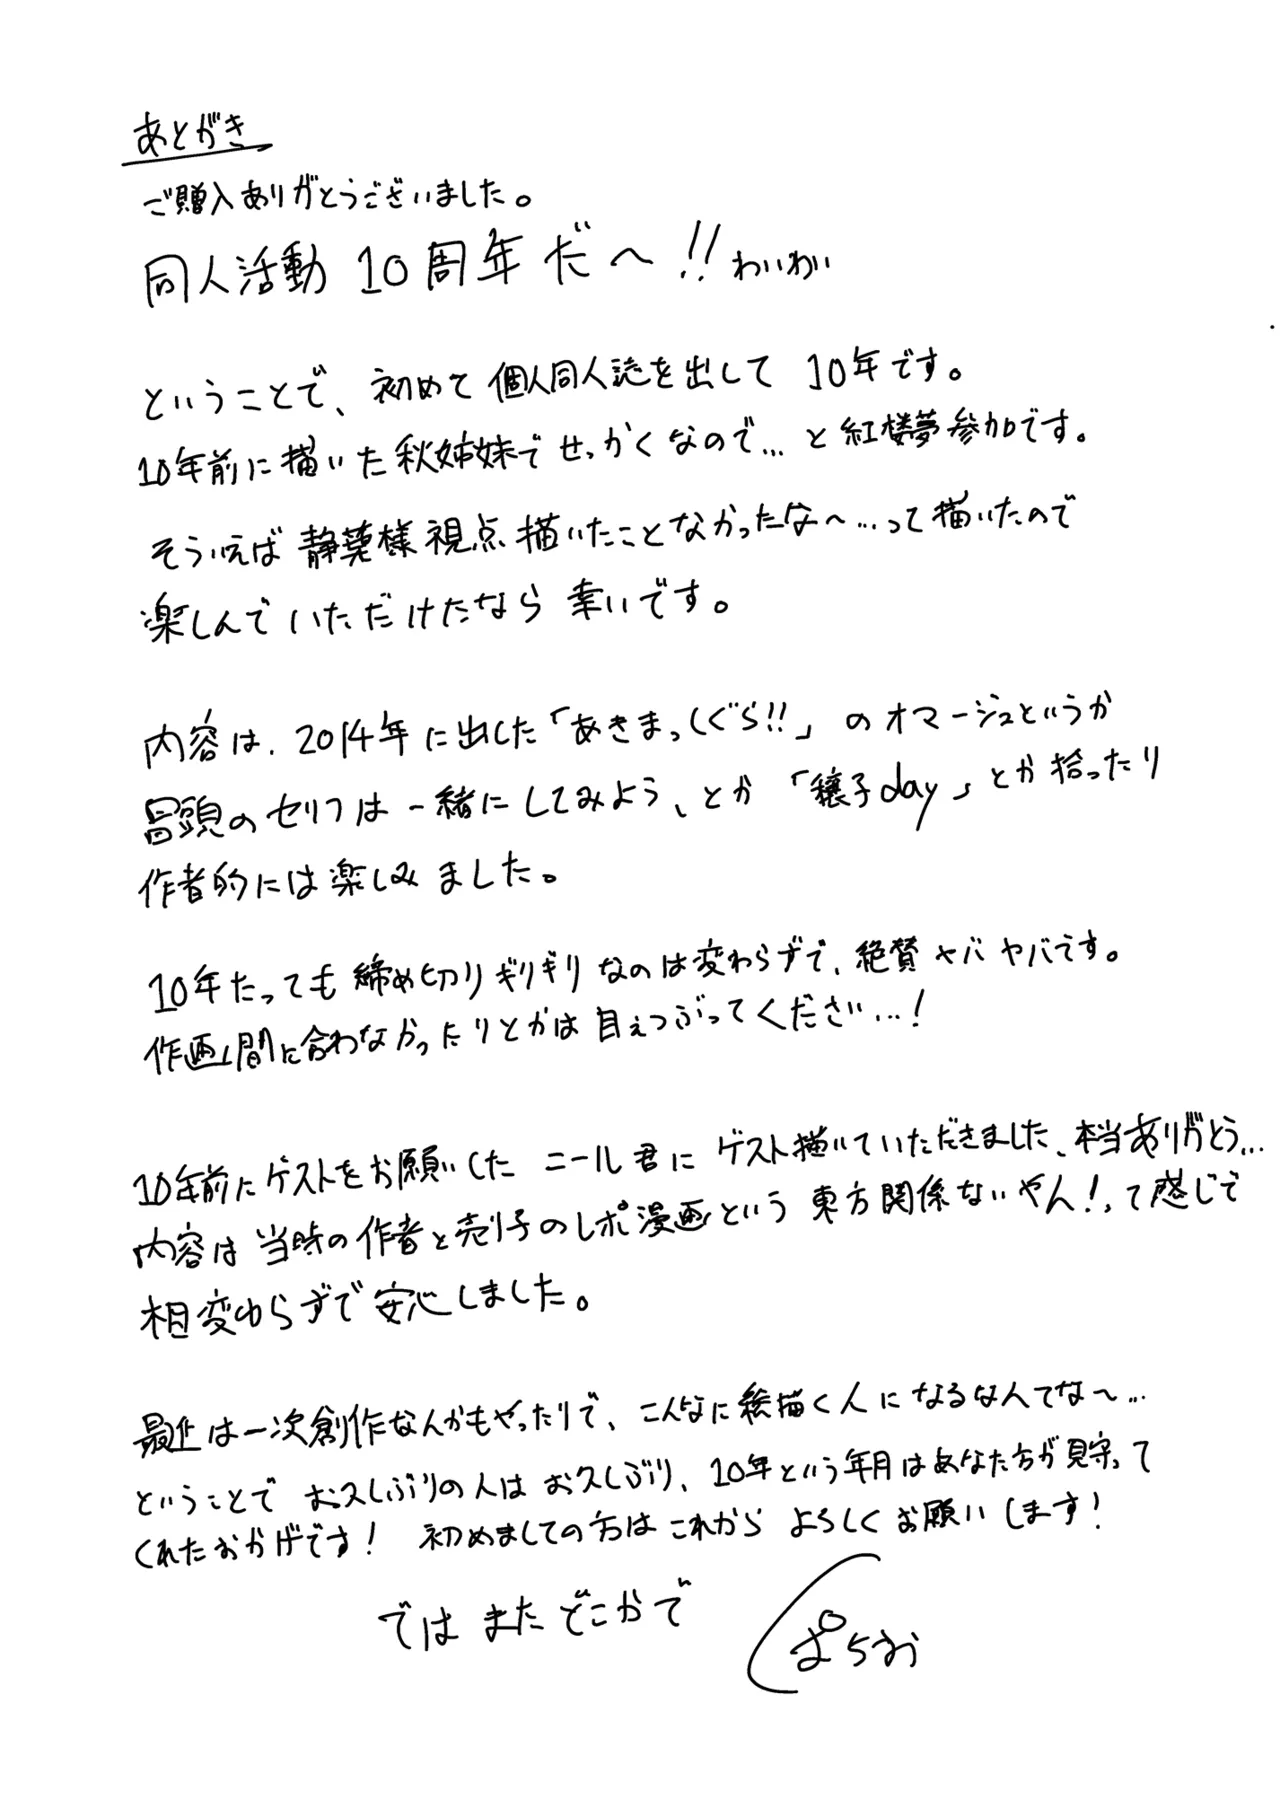 あとがき
ご購入ありがとうございました。
同人活動10周年だ〜!!わいわい
ということで、初めて個人同人誌を出して10年です。
10年前に描いた秋姉妹でせっかくなので…と紅楼夢参加です。
そういえば静葉様視点描いたことなかったな〜…って描いたので
楽しんでいただけたなら幸いです。
内容は、2014年に出した「あきまっしぐら!!」のオマージュというか
冒頭のセリフは一緒にしてみよう、とか「穣子day」とか拾ったり
作者的には楽しみました。
10年たっても締め切りギリギリなのは変わらずで、絶賛ヤバヤバです。
作画間に合わなかったりとかは目ぇつぶってください…!
10年前にゲストをお願いしたニール君にゲスト描いていただきました、本当ありがとう…
内容は当時の作者と売り子のレポ漫画という東方関係ないやん!って感じで
相変わらずで安心しました。
最近は一次創作なんかもやったりで、こんなに絵描く人になるなんてな〜…
ということでお久しぶりの人はお久しぶり、10年という年月はあなた方が見守って
くれたおかげです!初めましての方はこれからよろしくお願いします!
ではまたどこかで
ぽちお